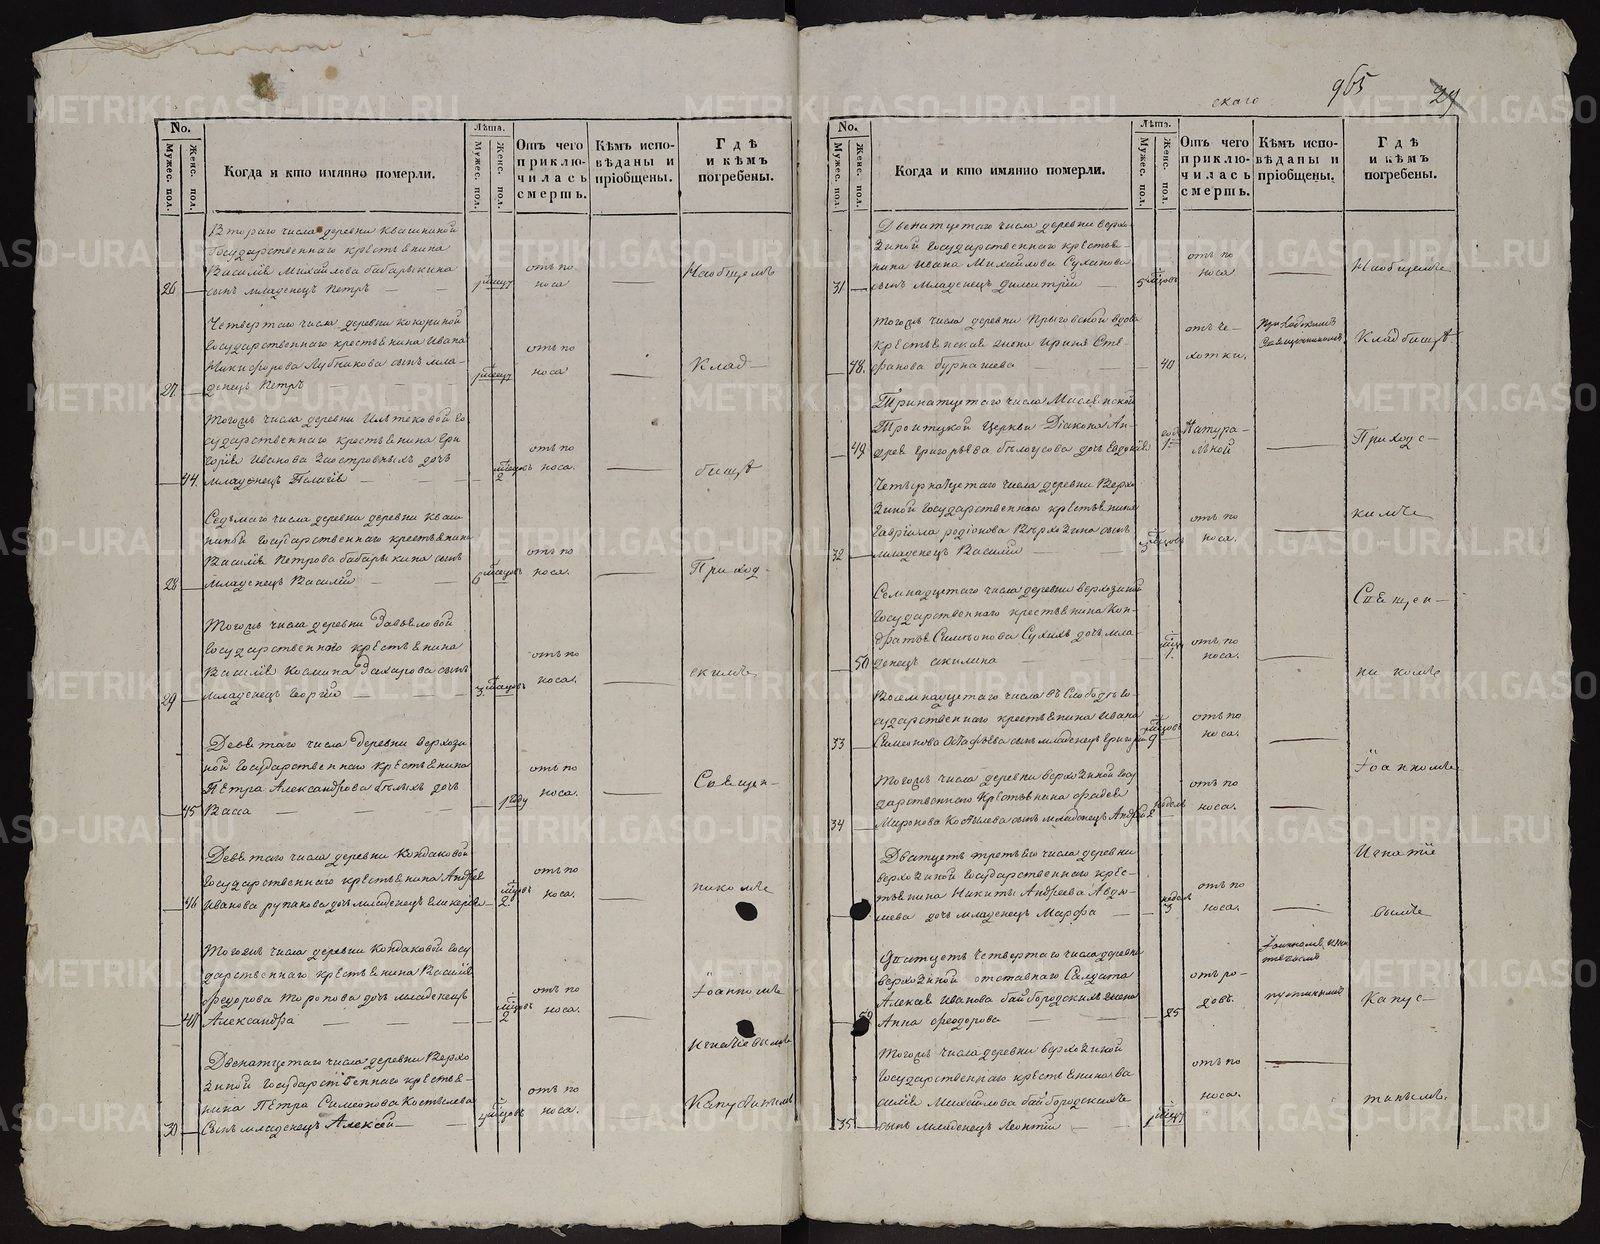 скаго
965
29
No.
Мужес. пол.
Женс. пол.
Когда и кто имянно померли.
Лѣта.
Мужес. пол.
Женс. пол.
Отъ чего приклю-
чилась смерть.
Кѣмъ испо-
вѣданы и
пріобщены.
Гдѣ
и кѣмъ
погребены.
Втораго числа деревни Квашниной
Государственнаго крестьянина
Василія Михайлова бабарыкина
26 — сынъ младенецъ Петръ — 1 мѣсяц отъ поноса — На общемъ
Четвертаго числа деревни кокориной
Государственнаго крестьянина Ивана
Никифорова сынъ мла-
27 — денецъ Петръ — 1 мѣсяц отъ поноса — Клад-
Тогожъ числа деревни го-
сударственнаго крестьянина Гри-
горія Иванова Заостровныхъ дочь
— 44. младенецъ Пелагія — 2 мѣсяцовъ отъ поноса. — бищѣ
Седьмаго числа деревни деревни Кваш-
ниной Государственнаго крестьянина
Василія Петрова бабарыкина сынъ
28 — младенецъ Василій — 6 мѣсяцовъ отъ поноса. — Приход-
Тогожъ числа деревни Давыдовой
Государственнаго крестьянина
Василія Козмина Захарова сынъ
29 — младенецъ Георгій — 3 мѣсяцовъ отъ поноса. — скимъ
Девятаго числа деревни верхози-
ной Государственнаго крестьянина
Петра Александрова бѣлыхъ дочь
— 45 Васса — 1 году отъ поноса. — Священ-
Девятаго числа деревни Кондаковой
Государственнаго крестьянина Андрея
— 46 Иванова рупакова дочь младенецъ Гликерія — 2 мѣсяцовъ отъ поноса. — никомъ
Тогожъ числа деревни Кондаковой Госу-
дарственнаго крестьянина Василія
Федорова Торопова дочь младенецъ
— 47 Александра — 2 мѣсяцовъ отъ поноса. — Іоанномъ
Двенатцетаго числа деревни Верхо-
зиной Государственнаго крестья-
нина Петра Симеонова Костылева
30 — Сынъ младенецъ Алексѣй — мѣсяцовъ отъ поноса. — Игнатіевымъ Капустинымъ
No.
Мужес. пол.
Женс. пол.
Когда и кто имянно померли.
Лѣта.
Мужес. пол.
Женс. пол.
Отъ чего приклю-
чилась смерть.
Кѣмъ испо-
вѣданы и
пріобщены.
Гдѣ
и кѣмъ
погребены.
Двенатцетаго числа деревни верхо-
зиной Государственнаго крестья-
нина Ивана Михайлова Суханова
31 — сынъ младенецъ Димитрій — 5 мѣсяцовъ отъ поноса — На общемъ
Тогожъ числа деревни Прыговской вдова
крестьянская жена Ирина Сте-
— 48. фанова бурнашева — 40 отъ чехотки. Приходскимъ Священникомъ Кладбищѣ
Тринатцетаго числа Маслянской
Троитцкой Церкви Діакона Ан-
— 49. дрея Григорьева бѣлоусова дочь Евдокія 1. Натуральной — Приходс-
Четырнатцетаго числа деревни Верхо-
зиной Государственнаго крестьянина
Гавріила родіонова Верхозина сынъ
32 — младенецъ Василій — 3 мѣсяцовъ отъ поноса. — кимъ
Семнадцетаго числа деревни верхозиной
Государственнаго крестьянина Кон-
дратья Симеонова Сухихъ дочь мла-
— 50 денецъ акилина — 1. отъ поноса. — Священ-
Восемнадцетаго числа въ Слободѣ Го-
сударственнаго крестьянина Ивана
33 — Симеонова сынъ младенецъ Григорій 9 мѣсяцовъ отъ поноса. — никомъ
Тогожъ числа деревни верхозиной Госу-
дарственнаго крестьянина фадея
34 — Миронова Костылева сынъ младенецъ Андрей 2 недѣль отъ поноса. — Іоанномъ
Дватцеть третьего числа деревни
верхозиной Государственнаго крес-
тьянина Никиты Андреева Авдю-
шева дочь младенецъ Марфа — 3 недѣль отъ поноса. — Игнатіе
вымъ
Дватцеть Четвертаго числа деревни
верхозиной отставнаго Салдата
Алексѣя Иванова байгородскихъ жена
— 52 Анна феодорова — 25 отъ родовъ. Іоанномъ Капус-
Тогожъ числа деревни верхозиной
Государственнаго крестьянина ва-
силія Михайлова байгородскихъ
35 — сынъ младенецъ Леонтій — 1 мѣсяцу отъ поноса. — тинымъ.